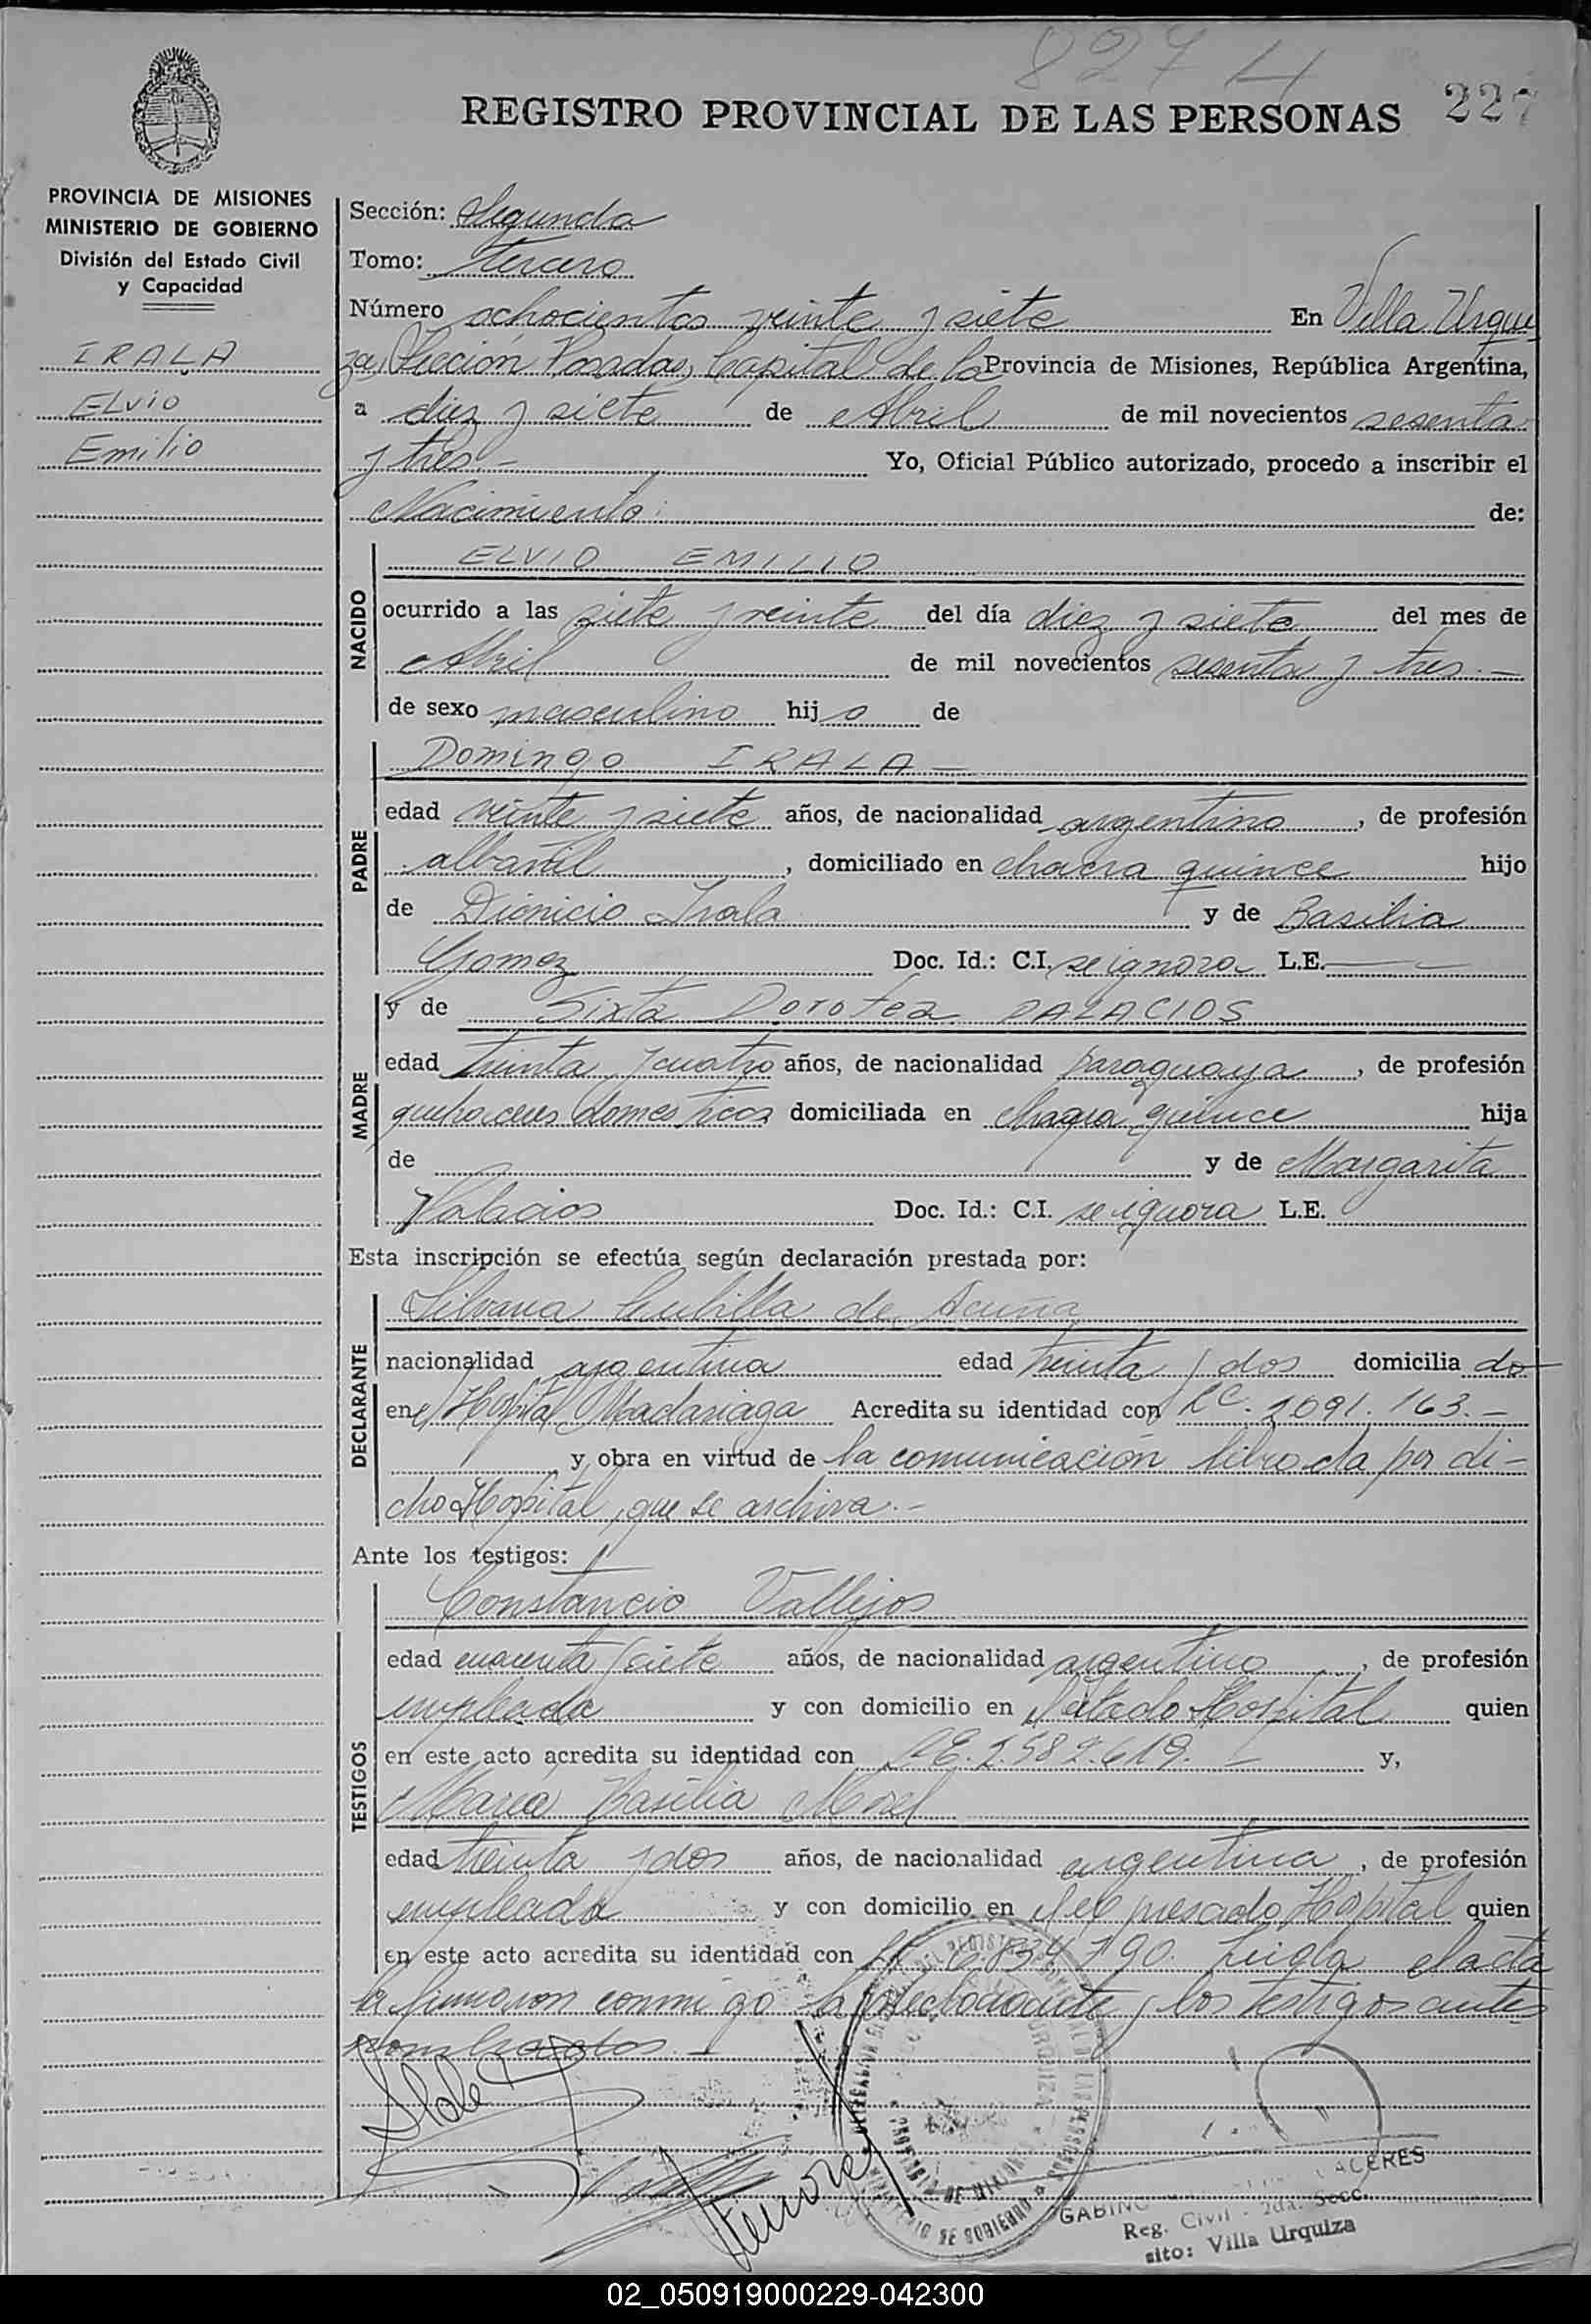 827 H
REGISTRO PROVINCIAL DE LAS PERSONAS 227
PROVINCIA DE MISIONES
MINISTERIO DE GOBIERNO
División del Estado Civil
y Capacidad
IRALA
ELVIO
Emilio
Sección: Segunda
Tomo: tercero
Número ochocientos veinte y siete En Villa Urqui
za, Sección Posadas, Capital de la Provincia de Misiones, República Argentina,
a diez y siete de Abril de mil novecientos sesenta
y tres.- Yo, Oficial Público autorizado, procedo a inscribir el
Nacimiento: de:
NACIDO
ELVIO EMILIO
ocurrido a las siete y veinte del día diez y siete del mes de
Abril de mil novecientos sesenta y tres.-
de sexo masculino hijo de
PADRE
Domingo IRALA-
edad veinte y siete años, de nacionalidad argentino, de profesión
albañil, domiciliado en chacra quince hijo
de Dionicio Irala y de Basilia
Gomez Doc. Id.: C.I. se ignora L.E.
MADRE
y de Sixta Dorotea PALACIOS
edad treinta y cuatro años, de nacionalidad paraguaya, de profesión
quehaceres domesticos domiciliada en chagra quince hija
de y de Margarita
Palacios Doc. Id.: C.I. se ignora L.E.
Esta inscripción se efectúa según declaración prestada por:
DECLARANTE
Silvana Cubilla de Acuña
nacionalidad argentina edad treinta y dos domiciliado
en el Hospital Madariaga Acredita su identidad con LC. 2091.163.-
y obra en virtud de la comunicación librada por di-
cho Hospital, que se archiva.-
Ante los testigos:
TESTIGOS
Constancio Vallejos
edad cuarenta y siete años, de nacionalidad argentino, de profesión
empleado y con domicilio en el citado Hospital quien
en este acto acredita su identidad con LE. 2.582.619. y,
Maria Basilia Morel
edad treinta y dos años, de nacionalidad argentina, de profesión
empleada y con domicilio en el expresado Hospital quien
en este acto acredita su identidad con 6.834.790. Leida el acta
la firmaron conmigo la declarante y los testigos antes
nombrados.-
PROVINCIA DE MISIONES
MINISTERIO DE GOBIERNO
GABINO CACERES
Reg. Civil - 2da. Secc.
sito: Villa Urquiza
02_050919000229-042300